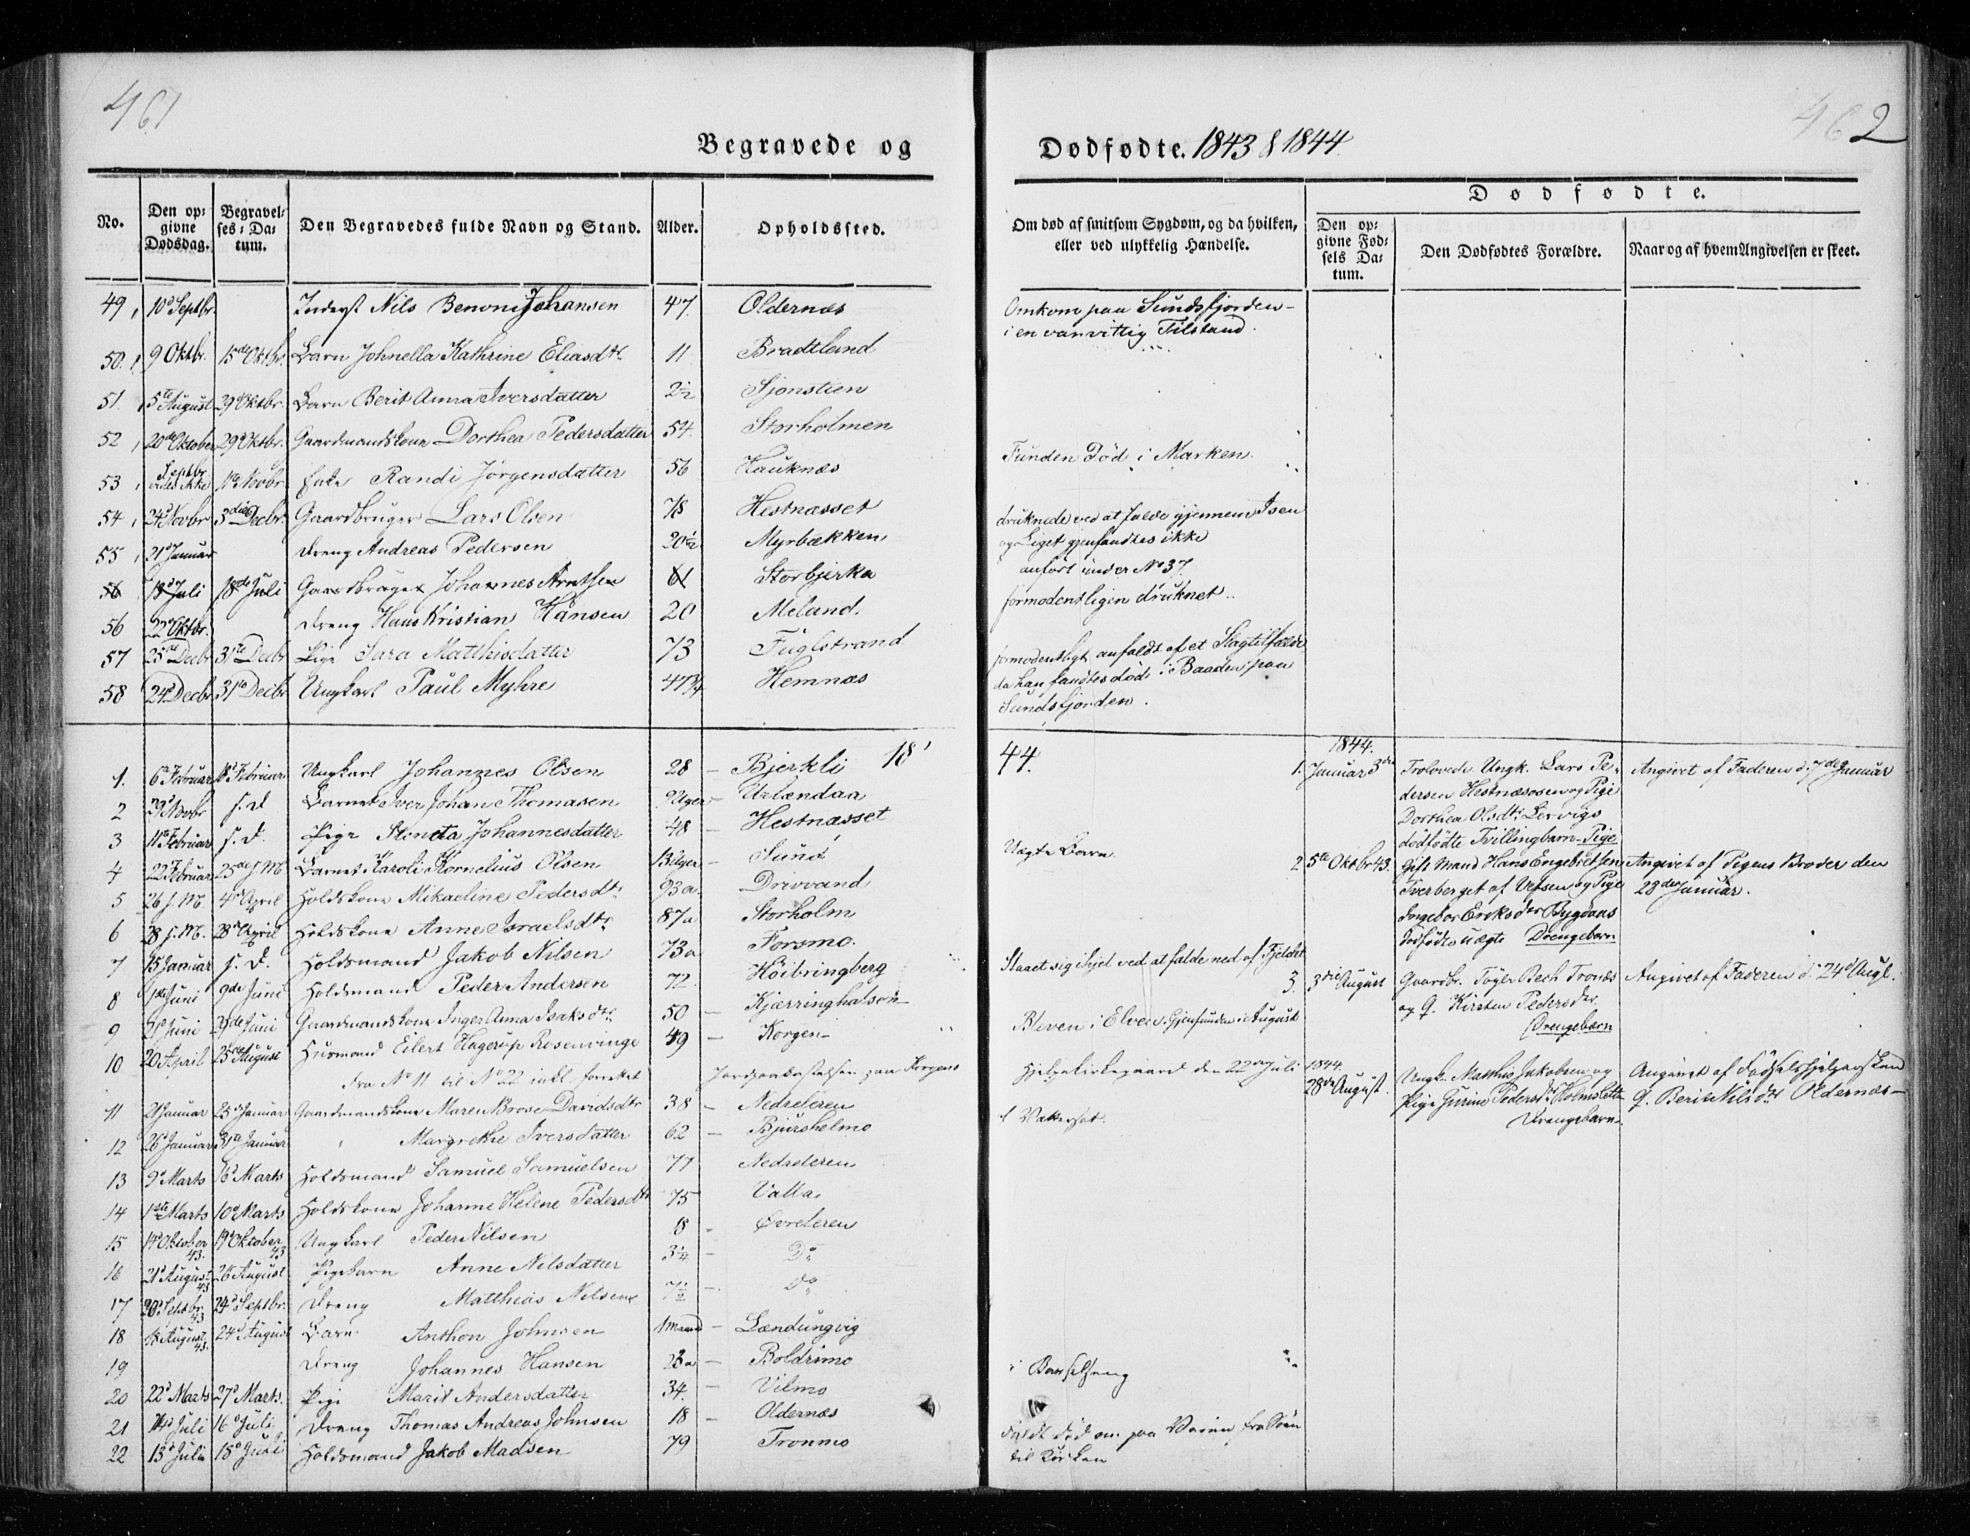 461
462
Begravede og Dødfødte. 1843 & 1844.
No.
Den opgivne Dødsdag.
Begravelses-Datum.
Den Begravedes fulde Navn og Stand.
Alder.
Opholdssted.
Om død af smitsom Sygdom, og da hvilken, eller ved ulykkelig Hændelse.
Dødfødte.
Den opgivne Fødsels Datum.
Den Dødfødtes Forældre.
Naar og af hvem Angivelsen er skeet.
49, 10d Septbr. Inderst Nils Benoni Johansen 47. Oldernæs Omkom paa Sundsfjorden i en vanvittig Tilstand.
50, 9 Oktbr. 15de Oktbr. Barn Johnella Kathrine Eliasdtr. 11 Bradtland
51. 5te August 29d Oktbr. Barn Berit Anna Iversdatter 2½ Sjonstien
52, 20de Oktober 29d Oktbr. Gaardmandskone Dorthea Pedersdatter 54. Storholmen
53, Septbr. vides ikke 1te Novbr. Enke Randi Jørgensdatter 56 Hauknæs Funden Død i Marken.
54, 24d Novbr 3die Decbr. Gaardbruger Lars Olsen 78 Hestnæsset
55, 21d Januar Dreng Andreas Pedersen 20½ Myrbækken druknede ved at falde gjennem Isen og Liget gjenfandtes ikke
56 13d Juli 18de Juli Gaardbruger Johannes Arntsen 61 Storbjerka anført under No 37.
56 22d Oktbr. Dreng Hans Kristian Hansen 20 Meland. formodentligen druknet.
57 25de Decbr 31te Decbr Pige Sara Matthisdatter 73 Fuglstrand
58 24d Decbr. 31te Decbr Ungkarl Paul Myhre 47¾ Hemnæs formodentligt anfaldt af et Slagtilfælde da han fandtes død i Baaden paa Sundsfjorden.
18 44.
1. 6te Februar 18d Februar Ungkarl Johannes Olsen 28 – Bjerkli
2 29d Novbr s. D Barnet Iver Johan Thomasen 9 Uger –
3 11te Februar s. D. Pige Johannesdatter 48 – Hestnæsset
4 22 Februar 25de s. M Barnet Karoli Kornelius Olsen 13 Uger – Sund Uægte Barn.
5 26 s. M. 4de April Holdskone Mikaeline Pedersdtr. 93 a. Drevvand
6 28 s. M. 28d April Holdskone Anne Israelsdtr 87 a Storholm
7 15 Januar s. D. Holdsmand Jakob Nilsen 73 a Forsmo.
8 1ste Juni 9de Juni Holdsmand Peder Andersen 72. Höibringberg Slaaet sig ihjel ved at falde ned af Fjeldet
9 Juni Juni Gaardmandskone Inger Anna Isaksdtr. 50 –
10 20 April 25de August Husmand Eilert Hagerup Rosenvinge 49 – Korgen – Bleven i Elven. Gjenfunden i August
fra No 11 til No 22 inkl. foretaget Jordpaakastelsen paa Korgens Hjelpekirkegaard den 22de Juli
11 2 Januar 25de Januar Gaardmandskone Maren Brose Davidsdtr 38 – Nedreleren
12 26d Januar 31te Januar Margrethe Iversdatter 62 – Bjurshelmo i Vattersot.
13 9d Marts 16d Marts Holdsmand Samuel Samuelsen 77 Nedreleren
14 1ste Marts 10d Marts Holdskone Johanne Helene Pedersdtr 75 – Valla
15 14d Oktober 43. 19d Oktober 43 Ungkarl Peder Nilsen 8 – Øvreleren
16 21d August 43 26d August Pigebarn Anne Nilsdatter 3¼ – Do
17 20d Septbr. 43 24d Septbr. Dreng Matthias Nilsen 7½ – Do
18 August 43. 24d August Barn Anthon Johnsen 1 Maaned – Lændungvig
19 Dreng Johannes Hansen 23 a – Boldrimo
20 22d Marts 27d Marts. Pige Marit Andersdatter 34. – Vilmo i Barselseng
21 14d Juli 16d Juli Dreng Thomas Andreas Johnsen 18 – Oldernæs
22 13d Juli 18d Juli Holdsmand Jakob Madsen 79 Tronmo Faldt død om paa Veien fra til Kirken
1844.
1. Januar 3die Trolovede Ungk. Lars Pedersen Hestnæsosen og Pige Dorthea Olsdtr. Lervigs dødfødte Tvillingbarn Pige Angivet af Faderen d. 7de Januar
2 5te Oktbr 43. Gift Mand Hans Engebretsen Tverberget af Vefsen og Pige Ingebor Eriksdtr Bygdaas dødfødte uægte Drengebarn Angivet af Pigens Broder den 28de Januar.
3. 3die August Gaardbr. Bech Tronæs og H. Kirsten Pedersdtr. Drengebarn Angivet af Faderen d. 24d Augt.
1844. 28de August. Ungk. Matthis Jakobsen og Pige Gurine Pedersdtr. Holmslett Drengebarn Angivet af Fødselshjelpersken G. Berit Nilsdtr Oldernæs –